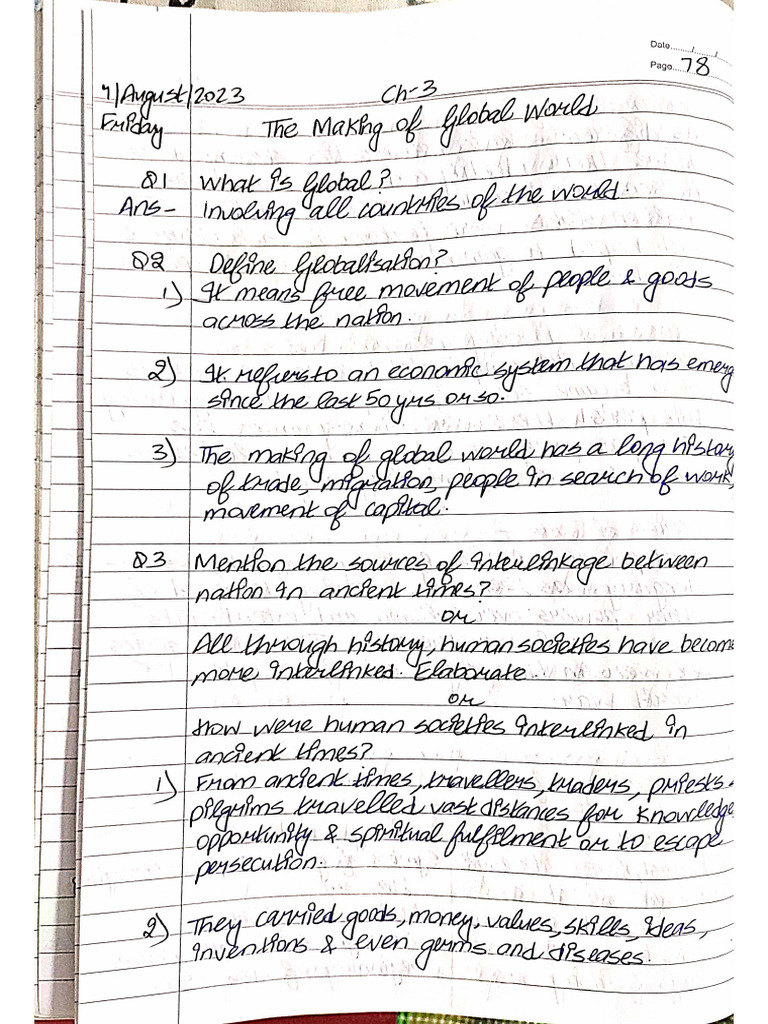 Date......./....../......
Page.....78
4/August/2023 Ch-3
Friday The Making of Global World
Q1 What is Global?
Ans- Involving all countries of the world.
Q2 Define Globalisation?
1) It means free movement of people & goods
across the nation.
2) It refers to an economic system that has emerg
since the last 50 yrs or so.
3) The making of global world has a long history
of trade, migration, people in search of work,
movement of capital.
Q3 Mention the sources of interlinkage between
nation in ancient times?
or
All through history, human societies have becom
more interlinked. Elaborate.
or
How were human societies interlinked in
ancient times?
1) From ancient times, travellers, traders, priests
pilgrims travelled vast distances for knowledge
opportunity & spiritual fulfilment or to escape
persecution.
2) They carried goods, money, values, skills, ideas,
inventions & even germs and diseases.